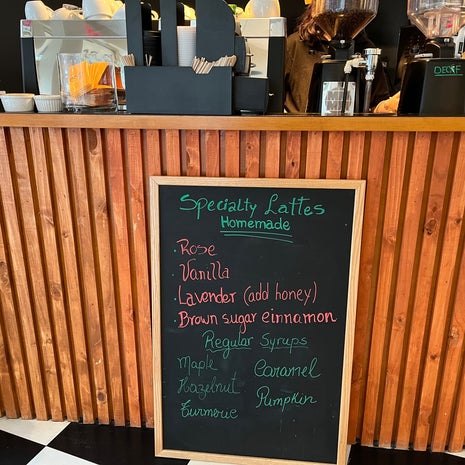 Specialty Lattes
Homemade
· Rose
· Vanilla
· Lavender (add honey)
· Brown sugar einnamon
Regular Syrups
Maple Caramel
Hazelnut Pumpkin
Turmeric
DECAF